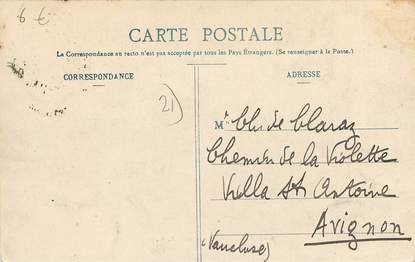 6 €
CARTE POSTALE
La Correspondance au recto n'est pas acceptée par tous les Pays Étrangers. (Se renseigner à la Poste.)
CORRESPONDANCE
ADRESSE
21)
Mr Ch. de Claraz
Chemin de la Violette
Villa St Antoine
Avignon
(Vaucluse)